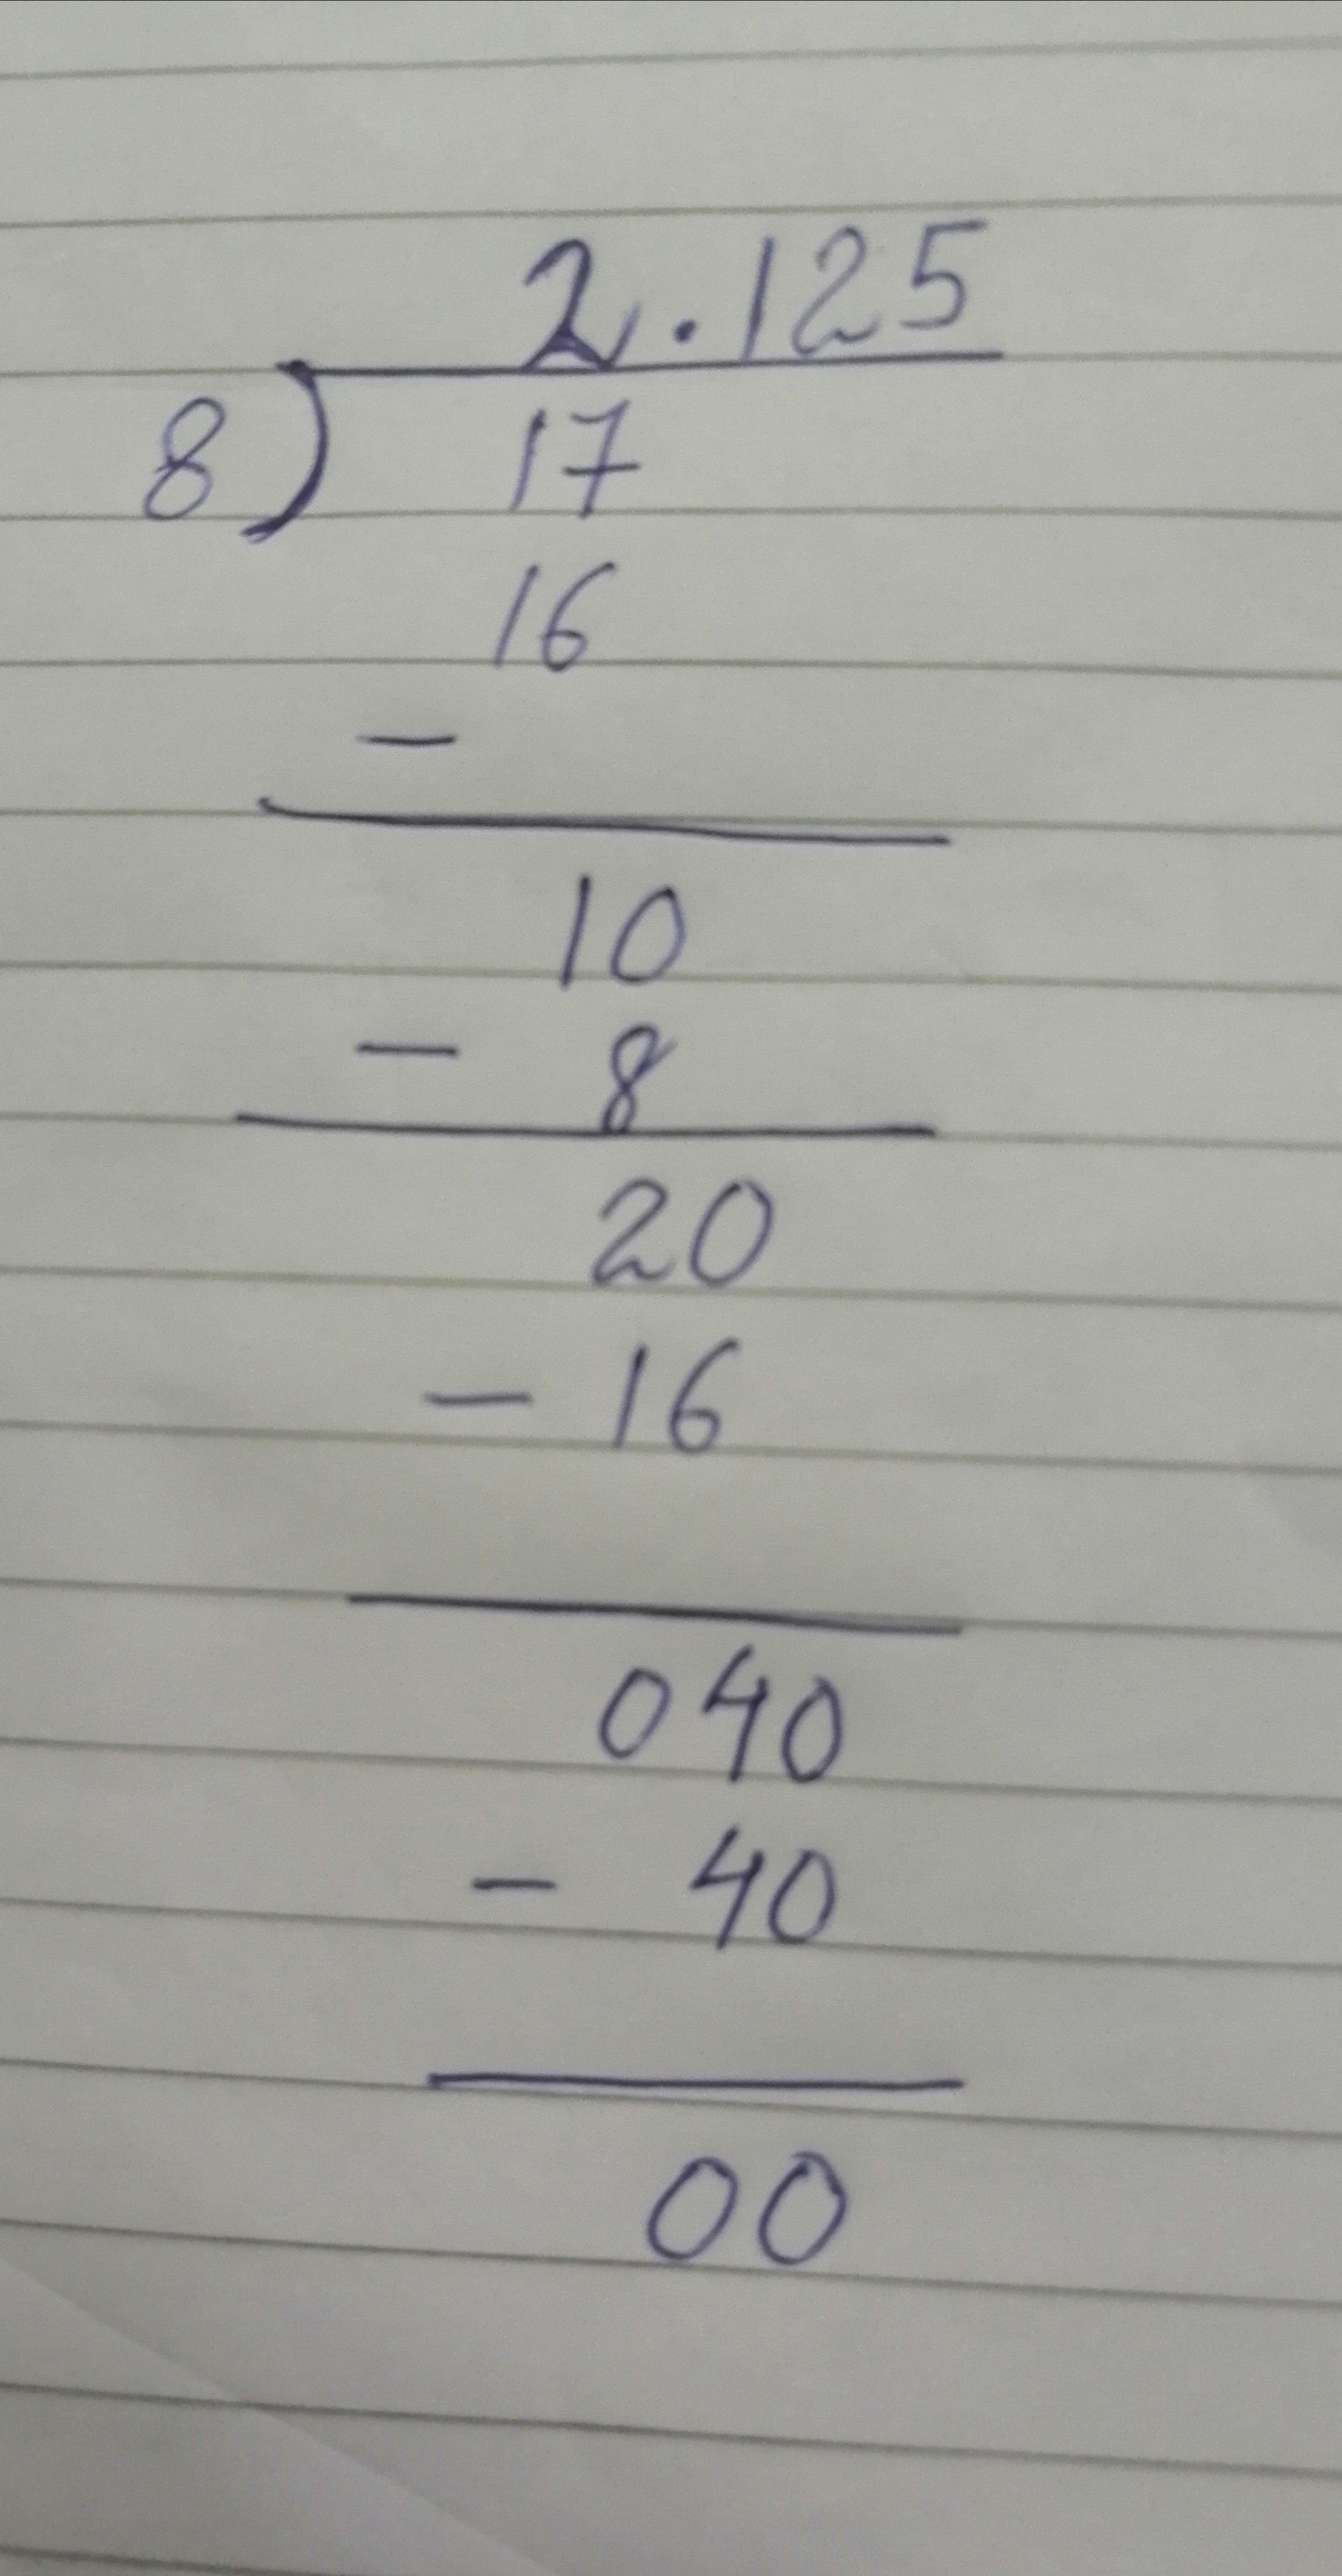 2.125
8) 17
16
-
10
- 8
20
- 16
040
- 40
00